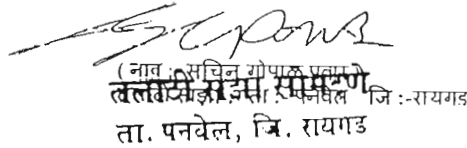 ( नाव :- सचिन गोपाल पवार )
तलाठी सझा सोमटणे
ता. पनवेल जि :-रायगड
ता. पनवेल, जि. रायगड